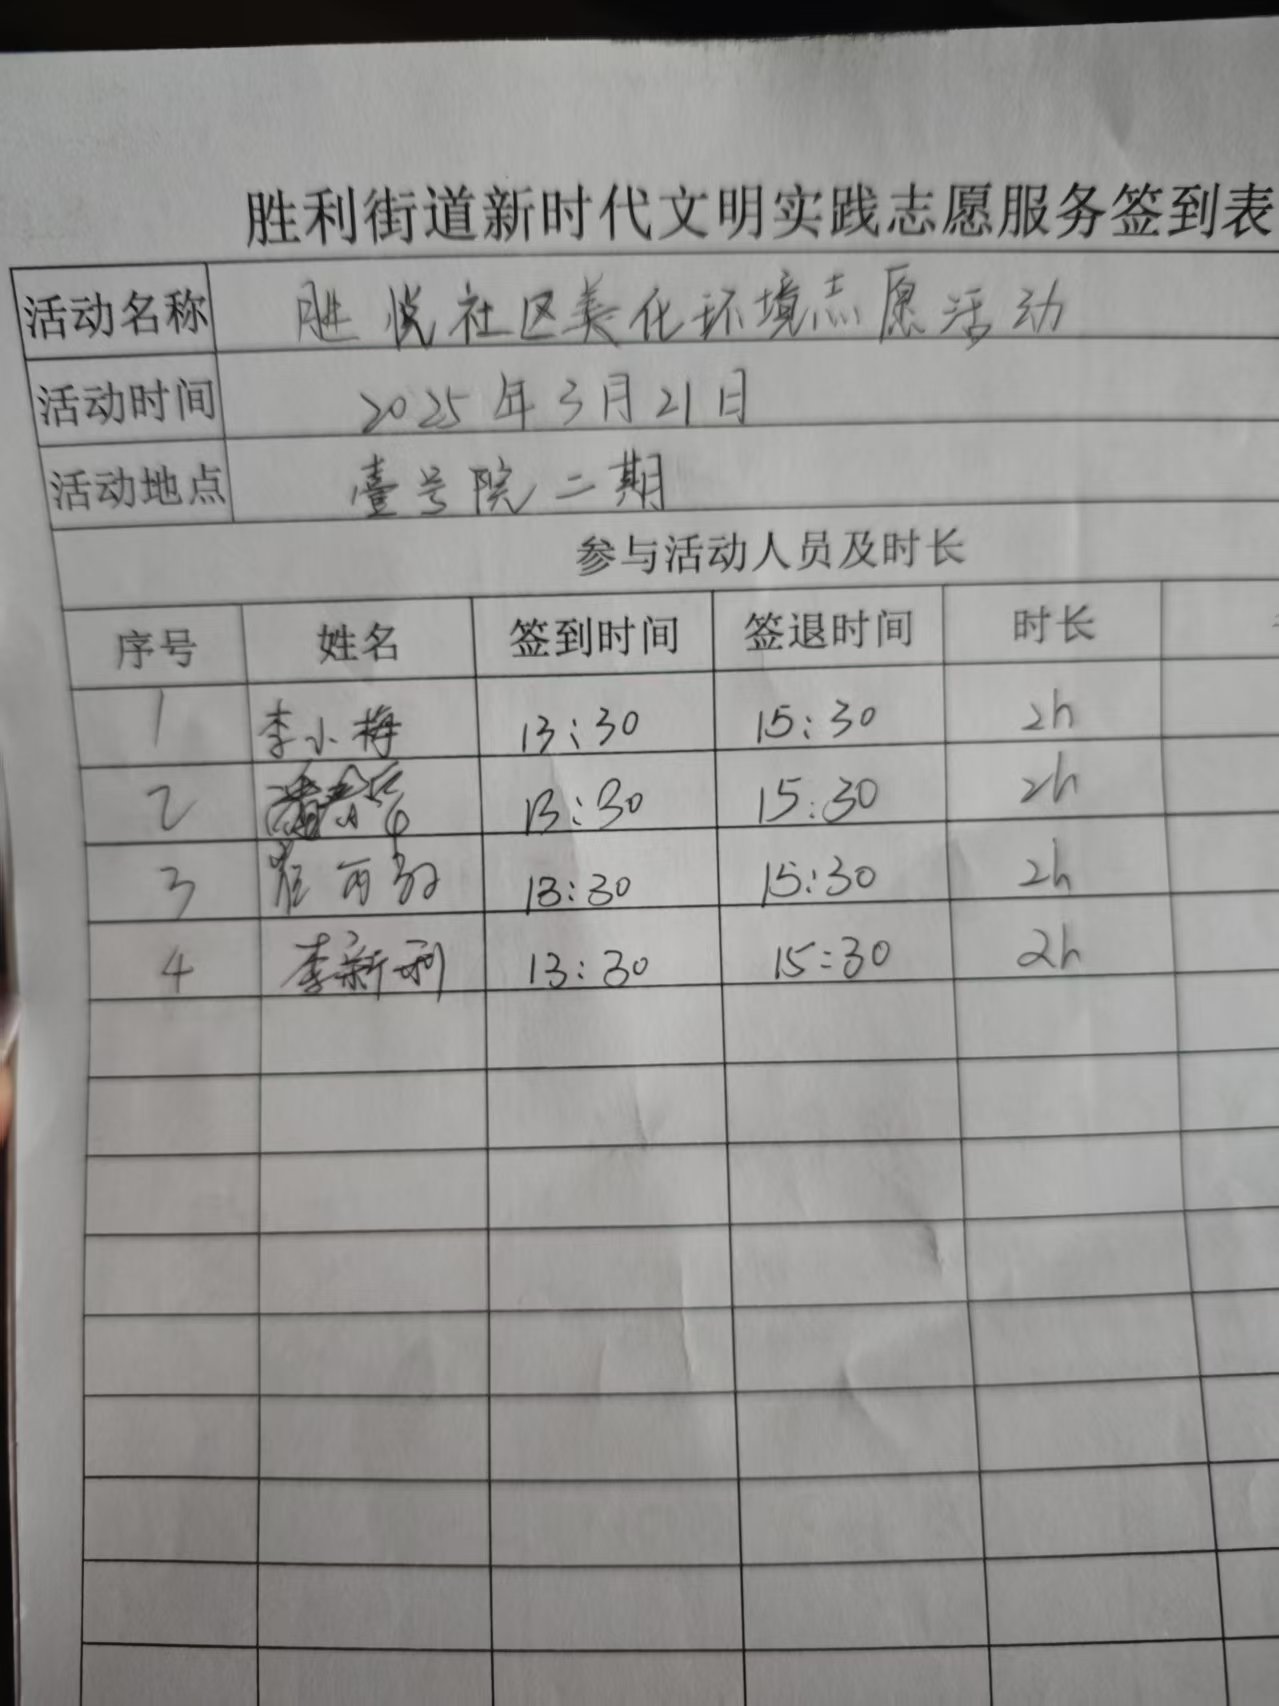 胜利街道新时代文明实践志愿服务签到表
活动名称 胜悦社区美化环境志愿活动
活动时间 2025年3月21日
活动地点 壹号院二期
参与活动人员及时长
序号 姓名 签到时间 签退时间 时长
1 李小梅 13:30 15:30 2h
2 13:30 15:30 2h
3 崔丽 13:30 15:30 2h
4 李新利 13:30 15:30 2h